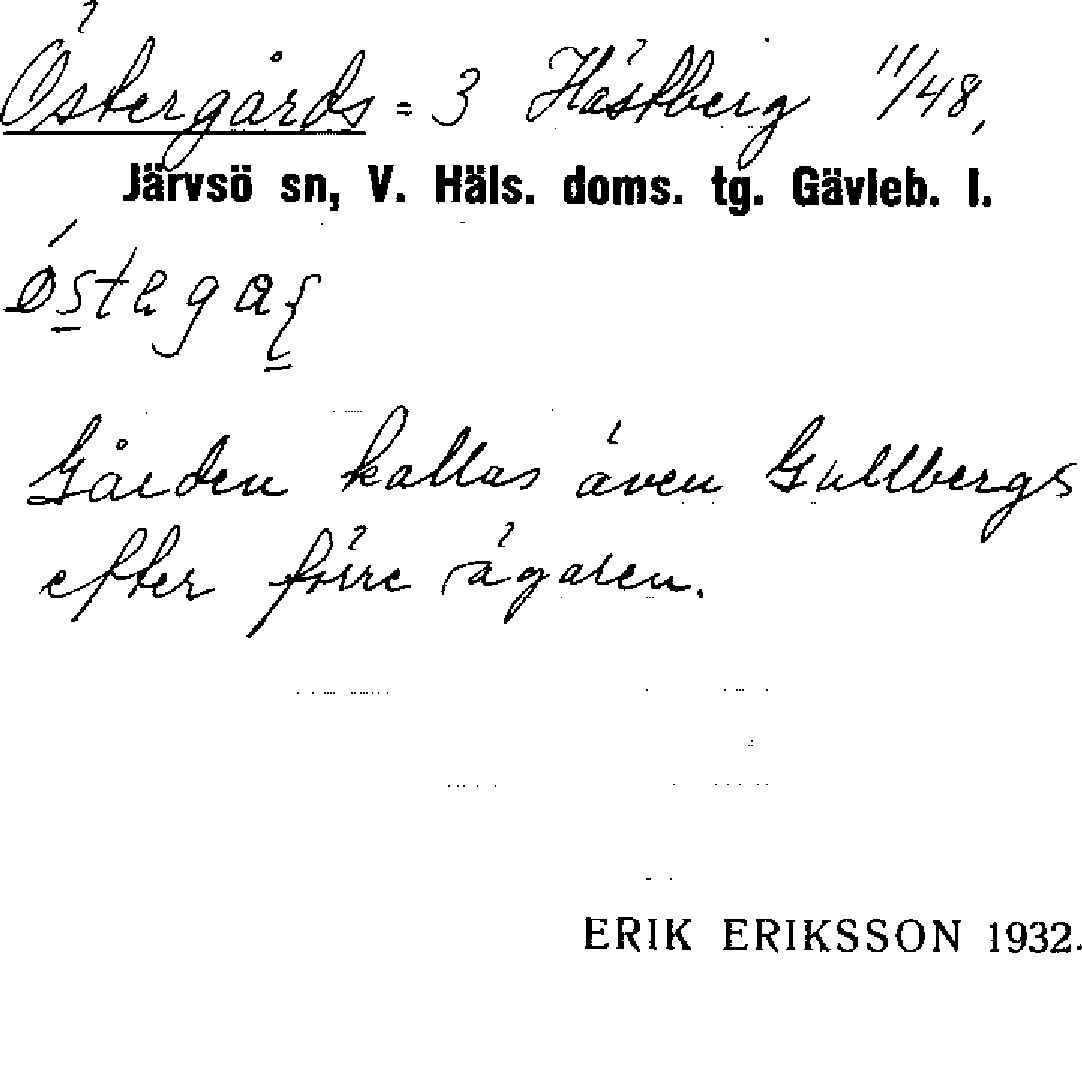 Östergårds = 3 Hästberg 11/48,
Järvsö sn, V. Häls. doms. tg. Gävleb. l.
Gården kallas även Gullbergs
efter förre ägaren.
ERIK ERIKSSON 1932.